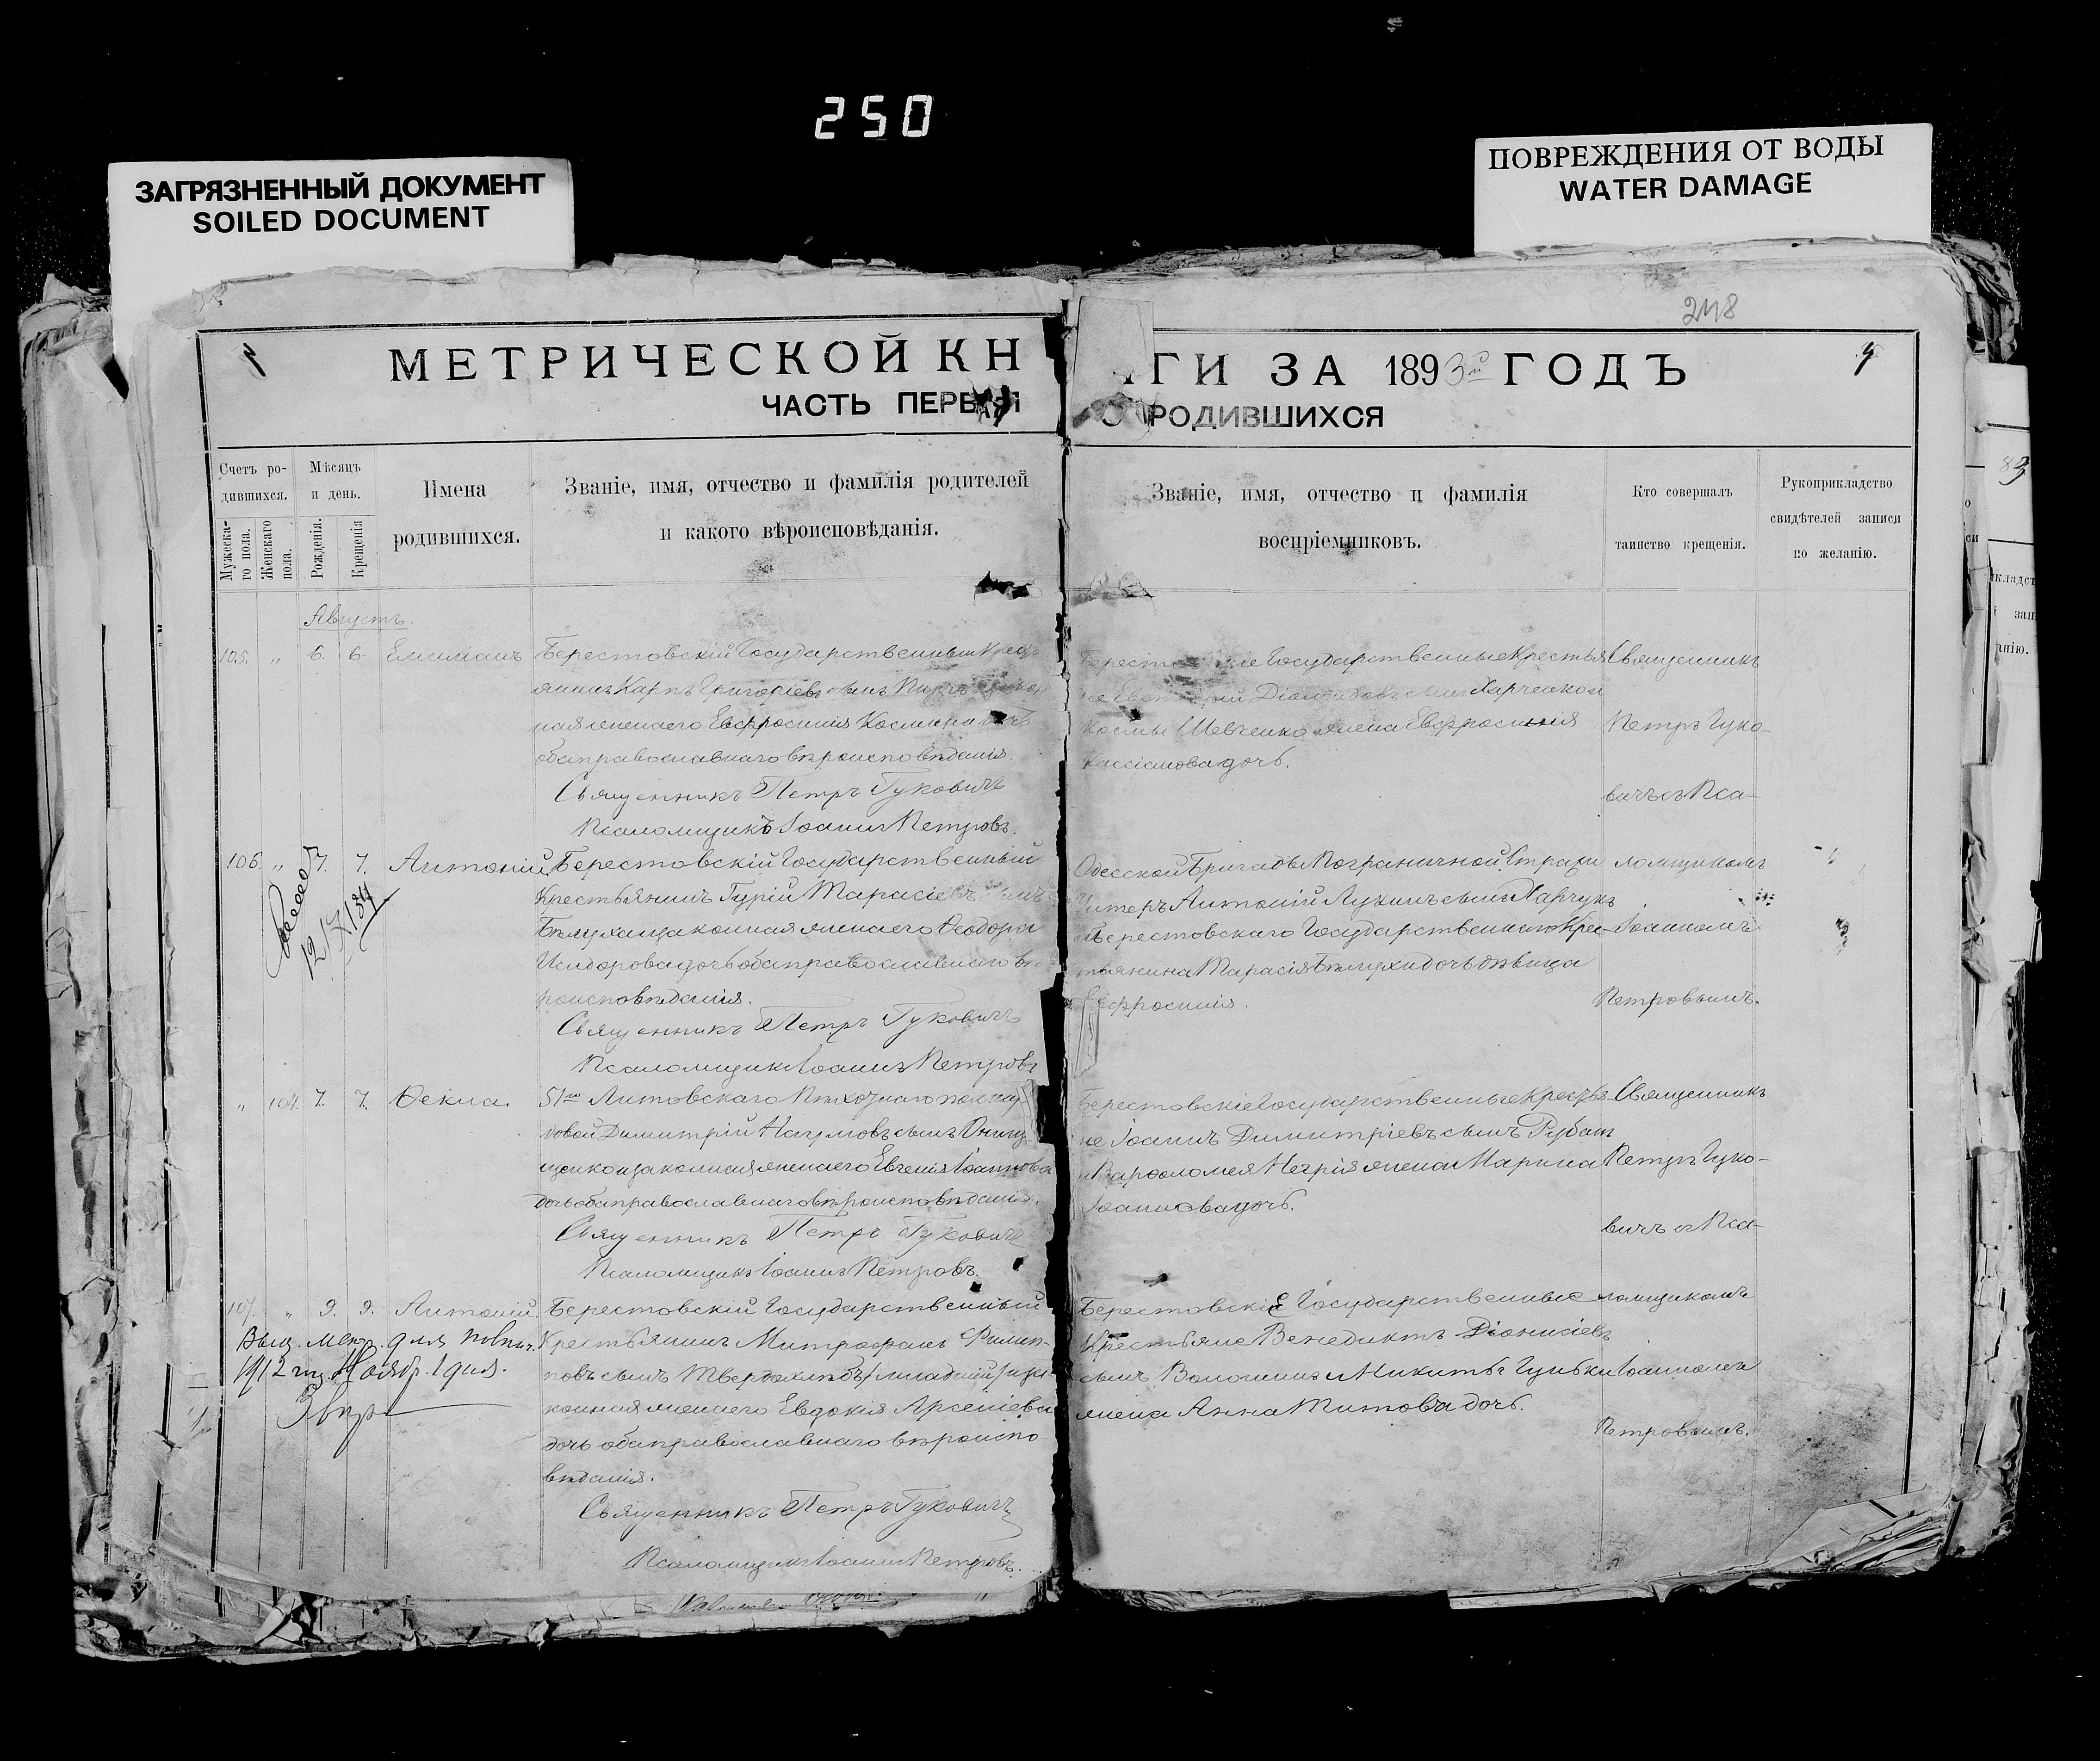 250
ЗАГРЯЗНЕННЫЙ ДОКУМЕНТ
SOILED DOCUMENT
ПОВРЕЖДЕНИЯ ОТ ВОДЫ
WATER DAMAGE
248
МЕТРИЧЕСКОЙ КН
ЧАСТЬ ПЕРВАЯ
Счетъ ро-
дившихся.
Мужеска-
го пола.
Женскаго
пола.
Мѣсяцъ
и день.
Рожденія.
Крещенія
Имена
родившихся.
Званіе, имя, отчество и фамилія родителей
и какого вѣроисповѣданія.
Августъ.
105. " 6. 6. Емиліанъ Берестовскій Государственный Крест
янинъ Карпъ Григоріевъ сынъ
ная жена его Евфросинія Космина дочь
оба православнаго вѣроисповѣданія.
Священникъ Петръ Гуковичъ
Псаломщикъ Іоаннъ Петровъ.
106. " 7. 7. Антоній Берестовскій Государственный
Крестьянинъ Гурій Тарасіевъ сынъ
Бѣлуха законная жена его Ѳеодора
Исидорова дочь оба православнаго вѣ
роисповѣданія.
Священникъ Петръ Гуковичъ
Псаломщикъ Іоаннъ Петровъ
" 104. 7. 7. Ѳекла. 51го Литовскаго Пѣхотнаго полка
довой Димитрій Наумовъ сынъ Онищ
щенко и законная жена его Евгенія Іоаннова
дочь оба православнаго вѣроисповѣданія.
Священникъ Петръ Гуковичъ
Псаломщикъ Іоаннъ Петровъ.
107. " 9. 9. Антоній. Берестовскій Государственный
Крестьянинъ Митрофанъ Филип-
повъ сынъ Твердохлѣбъ /младшій/ и за-
конная жена его Евдокія Арсеніева
дочь оба православнаго вѣроиспо
вѣданія.
Священникъ Петръ Гуковичъ
Псаломщикъ Іоаннъ Петровъ.
Выд. метр. для повин.
1912 год. Ноябр. 1 дня.
ГИ ЗА 1893й ГОДЪ
О РОДИВШИХСЯ
Званіе, имя, отчество и фамилія
воспріемниковъ.
Кто совершалъ
таинство крещенія.
Рукоприкладство
свидѣтелей записи
по желанію.
Берестовскіе Государственные Крестья
Космы Шевченко жена Евфросинія
Кассіанова дочь.
Священникъ
Петръ Гуко-
вичъ съ Пса-
ломщикомъ
Іоанномъ
Петровымъ.
Одесской Бригады Пограничной Стражи
Унтеръ Антоній Лукинъ сынъ Харчукъ
и Берестовскаго Государственнаго Крес-
тьянина Тарасія Бѣлухи дочь дѣвица
Евфросинія.
Берестовскіе Государственные Крестья-
не Іоаннъ Димитріевъ сынъ Рубанъ
и Варѳоломея Негрія жена Марина
Іоаннова дочь.
Священникъ
Петръ Гуко-
вичъ съ Пса-
ломщикомъ
Іоанномъ
Петровымъ.
Берестовскіе Государственные
Крестьяне Венедиктъ Діонисіевъ
сынъ Волошинъ и Никиты Гульки
жена Анна Титова дочь.